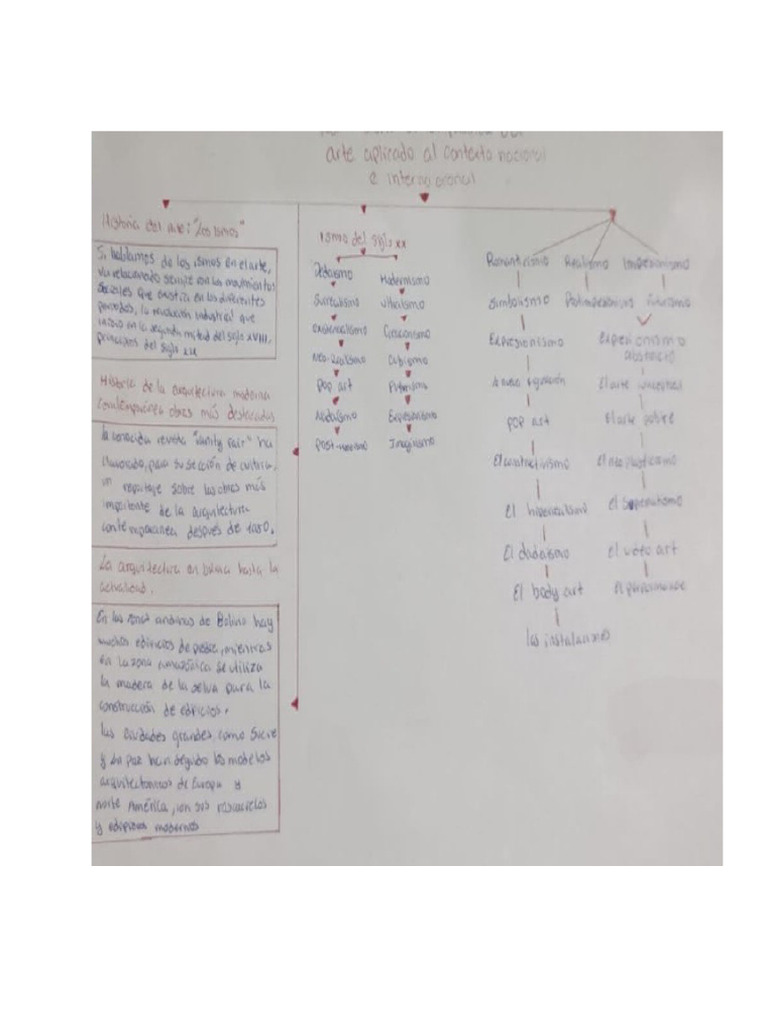 arte aplicado al contexto nacional
e internacional
Historia del arte: "Los ismos"
Si hablamos de los ismos en el arte,
va relacionado siempre con los movimientos
sociales que existia en los diferentes
periodos, la revolución industrial que
inicio en la segunda mitad del siglo XVIII,
principios del siglo XIX
Historia de la arquitectura moderna
contemporánea obras más destacadas
la conocida revista "Vanity Fair" ha
elaborado, para su sección de cultura,
un reportaje sobre las obras más
importante de la arquitectura
contemporanea después de 1950.
La arquitectura en bolivia hasta la
actualidad.
En las zonas andinas de Bolivia hay
muchos edificios de piedra, mientras
en la zona amazónica se utiliza
la madera de la selva para la
construcción de edificios.
las ciudades grandes, como Sucre
y La paz han seguido los modelos
arquitectonicos de Europa y
norte América, con sus rascacielos
y edificios modernos
ismo del siglo xx
Dadaismo
Surrealismo
existencialismo
Neo-realismo
pop art
Nadaismo
Post-
Modernismo
ultraismo
Creacionismo
Cubismo
Expresionismo
Imaginismo
Romanticismo Realismo Impresionismo
Simbolismo Futurismo
Expresionismo
Expresionismo
abstracto
la nueva figuración
El arte
POP art
El arte pobre
El constructivismo
El neoplasticismo
El hiperrealismo
El suprematismo
El dadaismo
El video art
El body art
El performance
las instalaciones